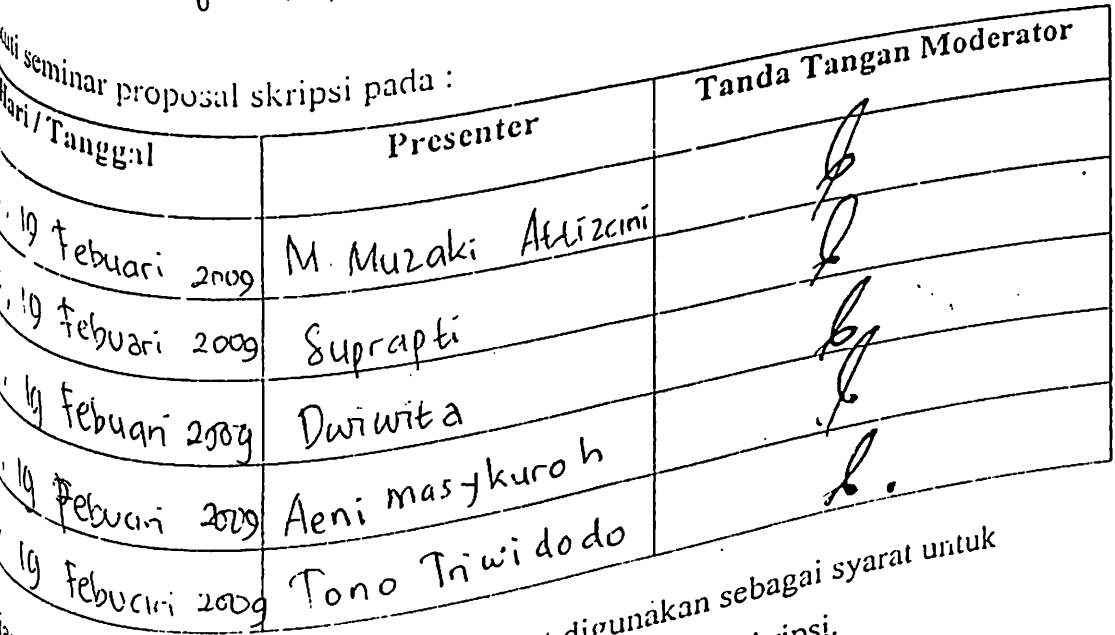 seminar proposal skripsi pada :
Hari / Tanggal Presenter Tanda Tangan Moderator
19 Febuari 2009 M. Muzaki
19 Febuari 2009 Suprapti
19 Febuari 2009 Dwiwita
19 Febuari 2009 Aeni masykuroh
19 Febuari 2009 Tono Triwidodo
digunakan sebagai syarat untuk